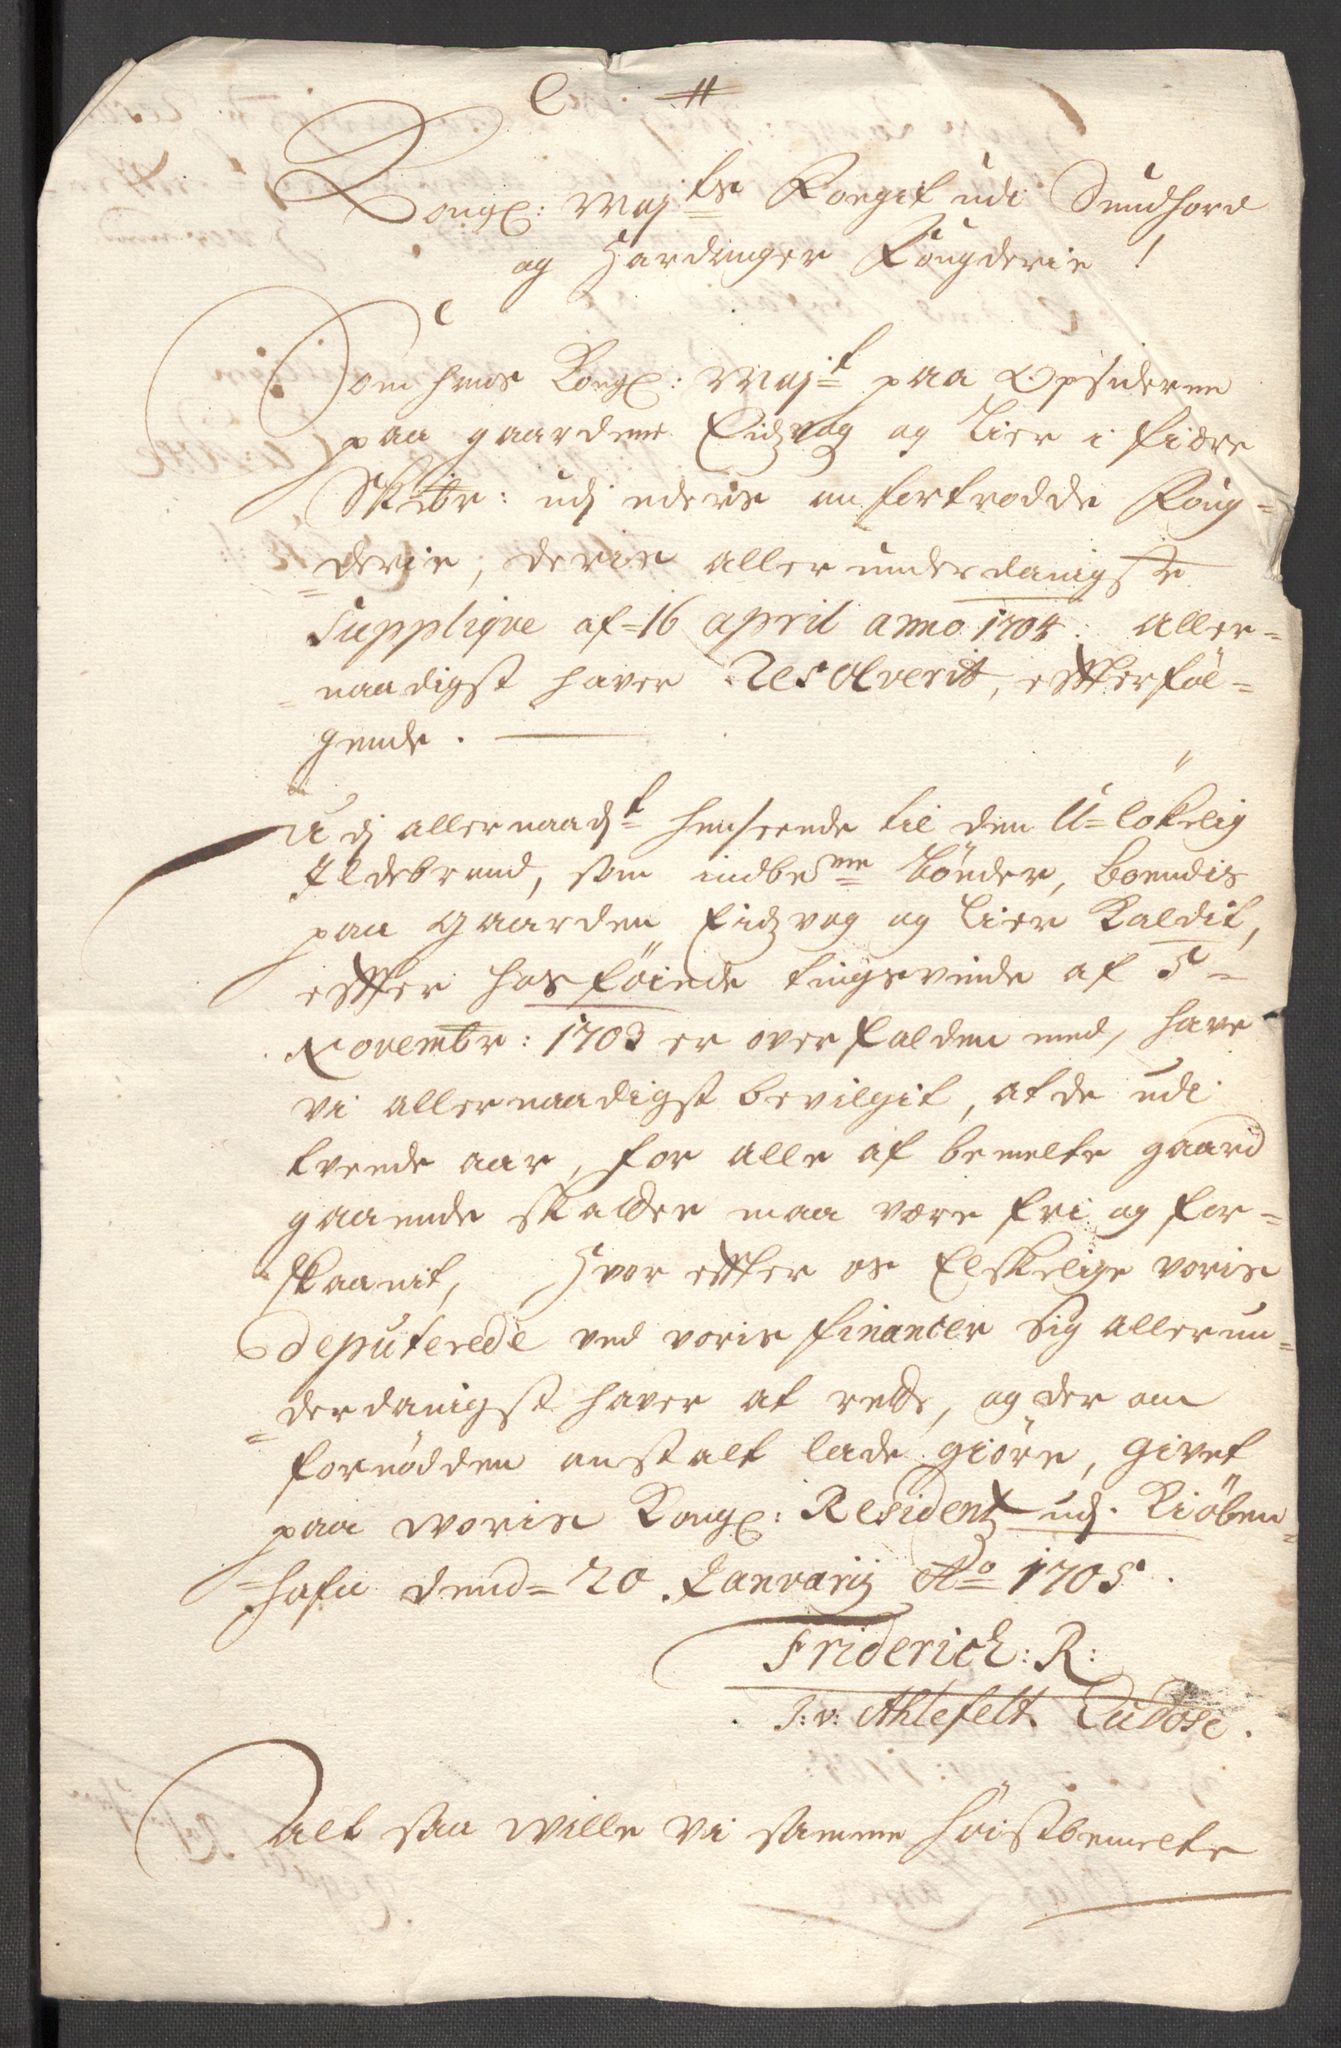 C #
Kongl: Maj<sup>ts</sup> Foegit udi Sundhord
og Hardanger Fougderie !
Som hans Kongl: Maj<sup>t</sup> paa Opsiderne
paa gaardene Eidzvog og Lier i Fiære
Skibr: udj ederis anfortrodde Foug=
=derie, deris allerunderdanigste
Supplique af 16 april anno 1704: aller=
=naadigst haver Resolverit, effterföl=
gende.
Udj allernaadj<sup>st</sup> henseende til den U=lökelig
Ildebrand, som indbe<sup>me</sup> bönder, boendis
paa Gaarden Eidzvog og Lier Kaldit,
effter hosföiede tingsvinde af 5=
Novembr: 1703 er overfalden med, have
vi allernaadigst bevilgit, at de udi
tvende aar, for alle af bemelte gaard
gaaende skatter maa være fri og for=
skaanit, Hvor effter os Elskelige voris
deputerede ved voris financer sig allerun=
=derdanigst haver at rette, og der om
fornödden anstalt lade giöre, givet
paa woris Kongl: Residentz udj Kiöben=
=hafn dend= 20. Januarij A<sup>o</sup> 1705.
Friderich: R:
J: v: Ahlefelt. Dudose.
alt saa wille vi samme höistbemelte